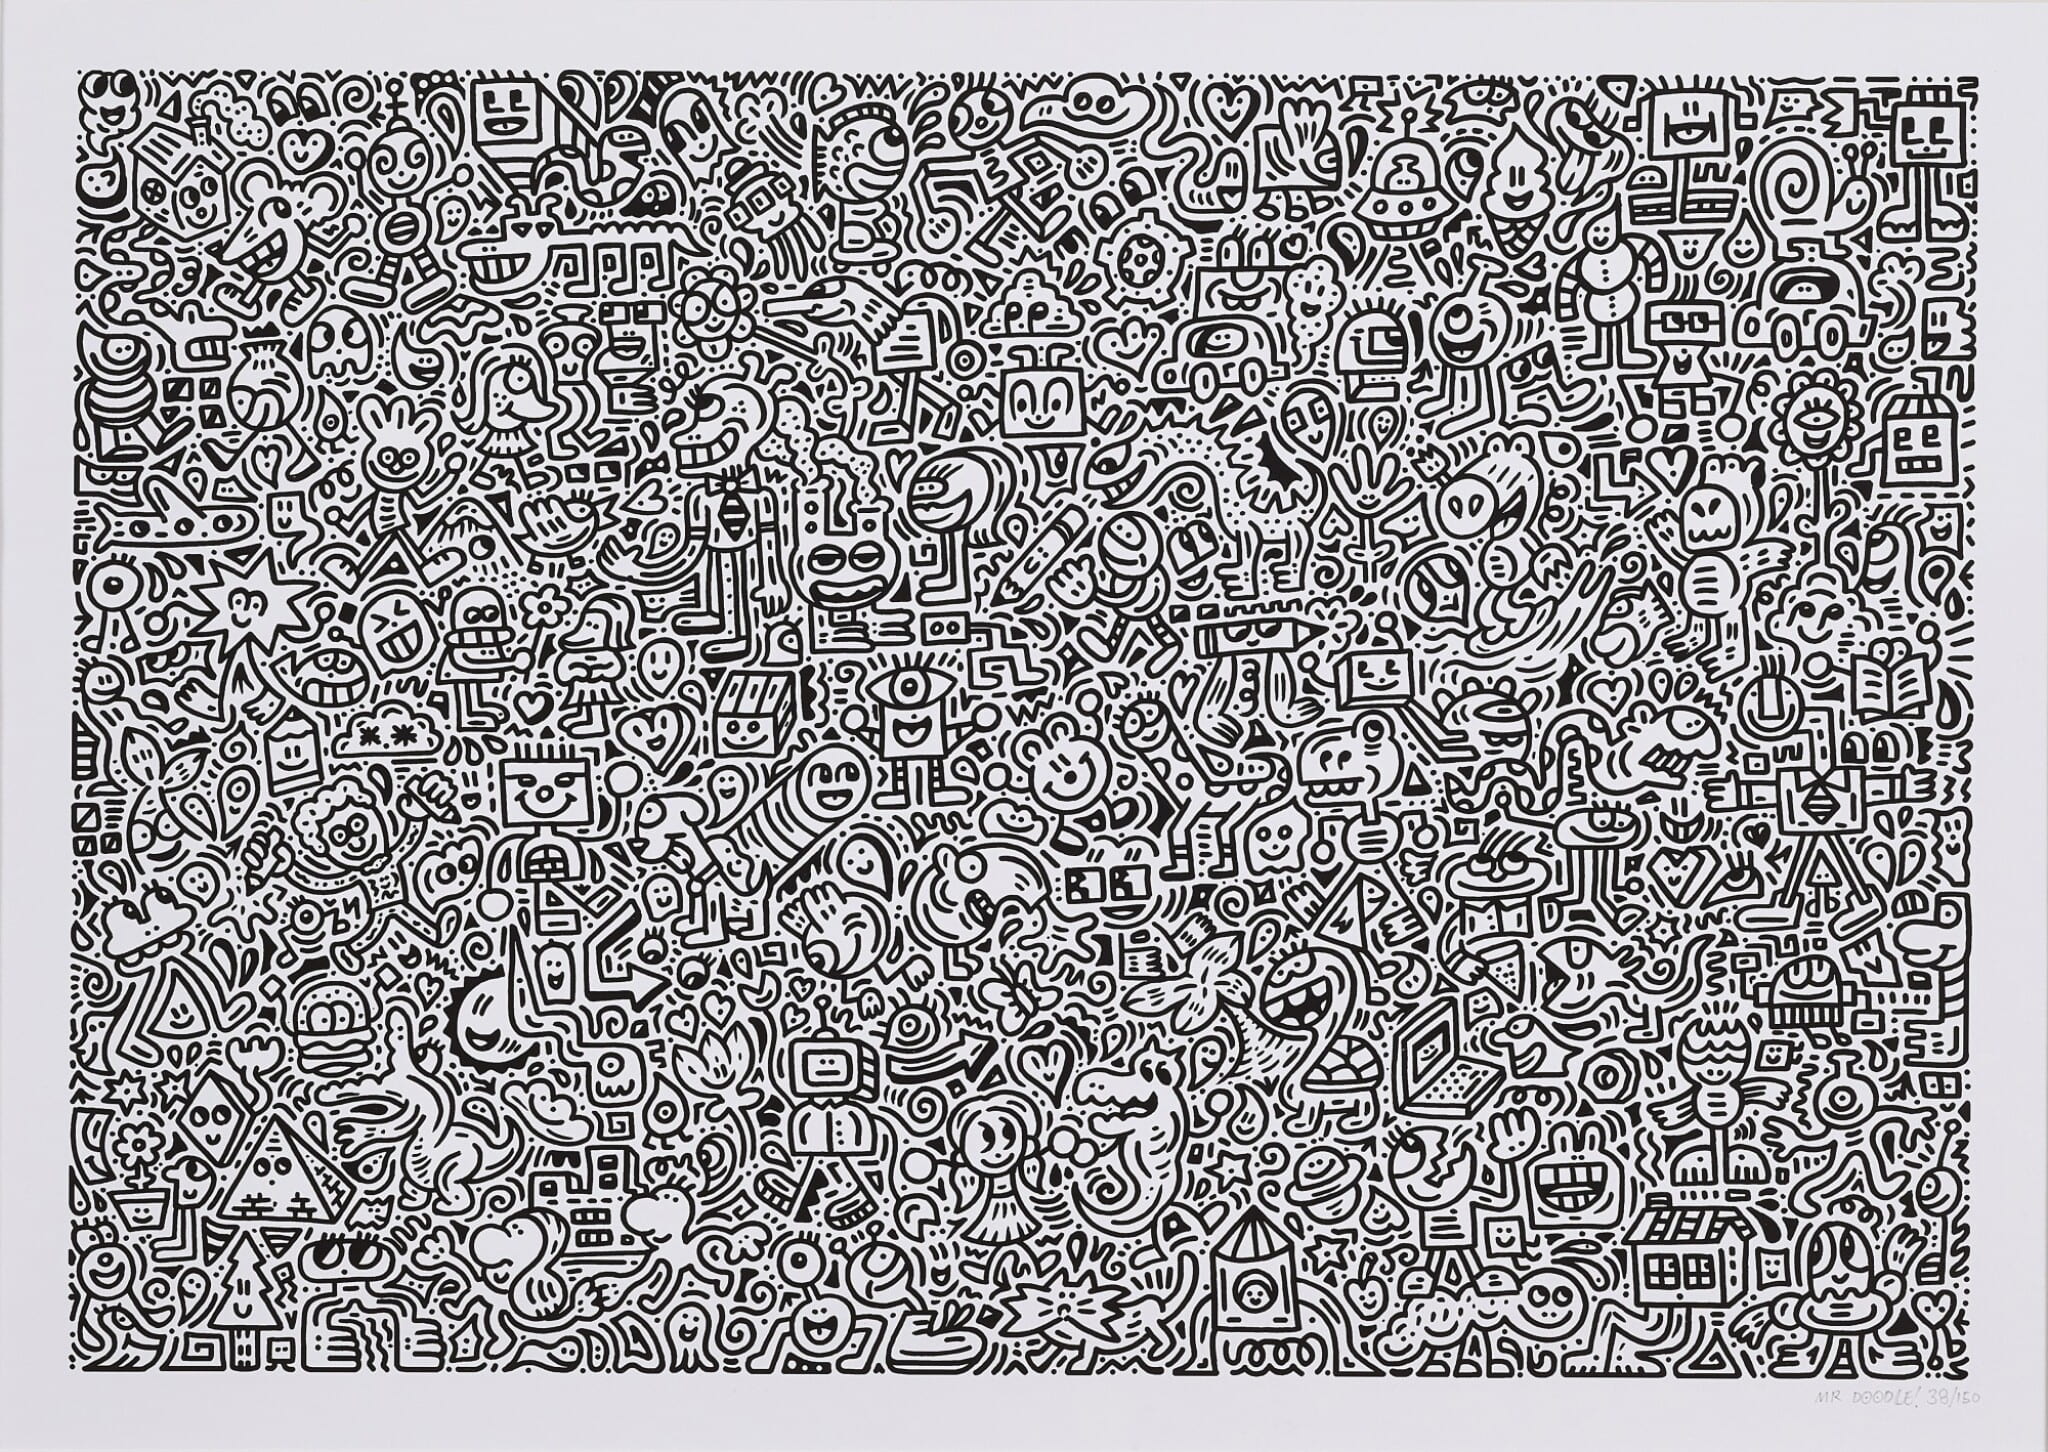 MR DOODLE! 38/150